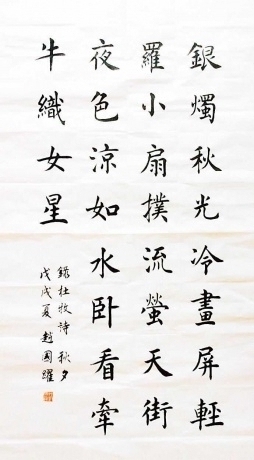 銀燭秋光冷畫屏輕
羅小扇撲流螢天街
夜色涼如水卧看牽
牛織女星
錄杜牧詩秋夕
戊戌夏趙國躍